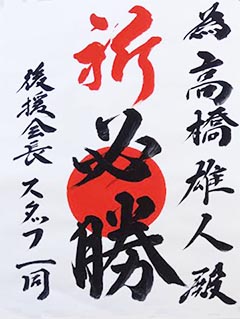 為高橋雄人殿
祈必勝
後援会長スタッフ一同